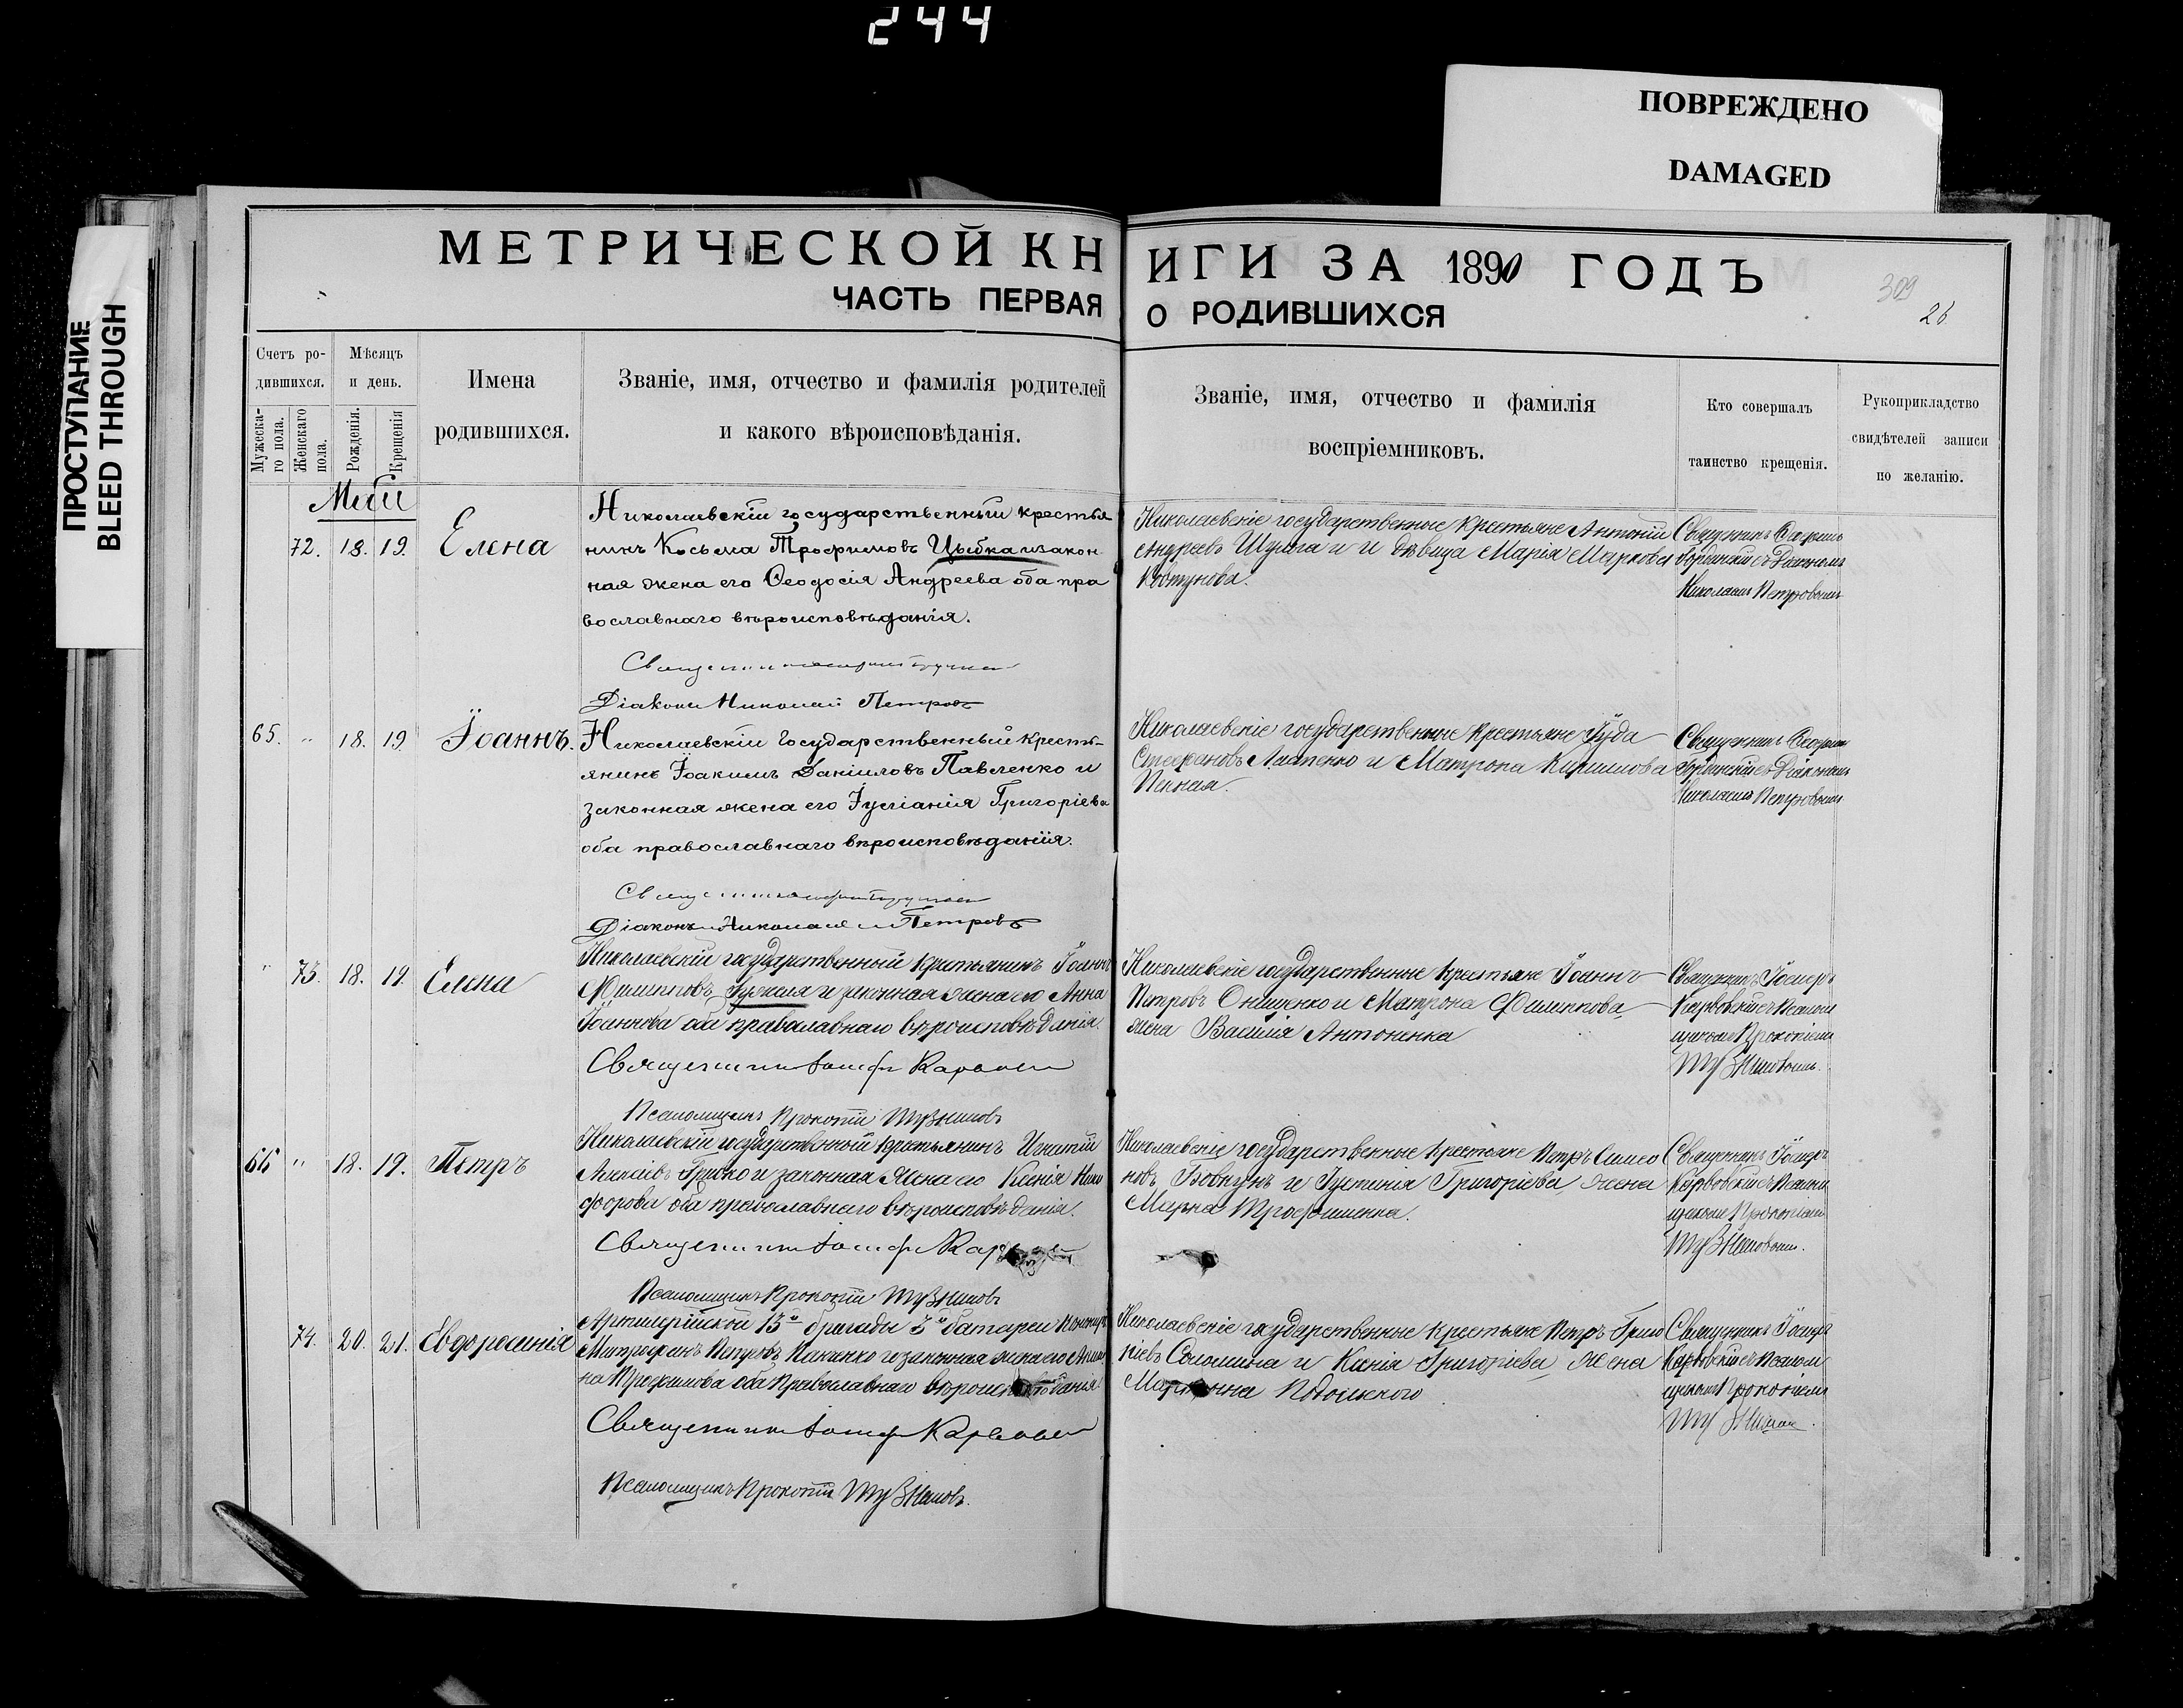 244
ПОВРЕЖДЕНО
DAMAGED
ПРОСТУПАНИЕ
BLEED THROUGH
МЕТРИЧЕСКОЙ КНИГИ ЗА 1890 ГОДЪ
ЧАСТЬ ПЕРВАЯ О РОДИВШИХСЯ
309
26
Счетъ ро-
дившихся.
Мужеска-
го пола.
Женскаго
пола.
Мѣсяцъ
и день.
Рожденія.
Крещенія
Имена
родившихся.
Званіе, имя, отчество и фамилія родителей
и какого вѣроисповѣданія.
Званіе, имя, отчество и фамилія
воспріемниковъ.
Кто совершалъ
таинство крещенія.
Рукоприкладство
свидѣтелей записи
по желанію.
Май
72. 18. 19. Елена
Николаевскій государственный крестья
нинъ Косьма Трофимовъ Цыбка и закон
ная жена его Ѳеодосія Андреева оба пра
вославнаго вѣроисповѣданія.
Діаконъ Николай Петровъ
Николаевскіе государственные крестьяне Антоній
Андреевъ Шулга и и дѣвица Марія Маркова
Ковтунова.
Священникъ
съ Діакономъ
Николаемъ Петровымъ
65. " 18. 19. Іоаннъ.
Николаевскій Государственный кресть-
янинъ Іоакимъ Даніиловъ Павленко и
законная жена его Іуліанія Григоріева
оба православнаго вѣроисповѣданія.
Діаконъ Николай Петровъ
Николаевскіе государственные крестьяне Іуда
Стефановъ и Матрона
Священникъ
съ Діакономъ
Николаемъ Петровымъ
" 73. 18. 19. Елена
Николаевскій государственный крестьянинъ Іоаннъ
Филипповъ и законная жена его Анна
Іоаннова оба православнаго вѣроисповѣданія.
Священникъ Іосифъ
Псаломщикъ Прокопій
Николаевскіе государственные крестьяне Іоаннъ
Петровъ Онищенко и Матрона Филиппова
жена Василія Антоненка
Священникъ Іосифъ
съ Псалом
щикомъ Прокопіемъ
66 " 18. 19. Петръ
Николаевскій государственный крестьянинъ Игнатій
Алексіевъ Гришко и законная жена его Ксенія Ники
форова оба православнаго вѣроисповѣданія.
Священникъ Іосифъ
Псаломщикъ Прокопій
Николаевскіе государственные крестьяне Петръ Симео
новъ и Іустинія Григоріева жена
Марка Трофименка.
Священникъ Іосифъ
съ Псалом
щикомъ Прокопіемъ
74. 20. 21. Евфросинія
Артилерійской 13й бригады 3й батареи
Митрофанъ Петровъ и законная жена его
на Трофимова оба Православнаго вѣроисповѣданія
Священникъ Іосифъ
Псаломщикъ Прокопій
Николаевскіе государственные крестьяне Петръ Григо
ріевъ Соломина и Ксенія Григоріева жена
Священникъ Іосифъ
съ Псалом
щикомъ Прокопіемъ